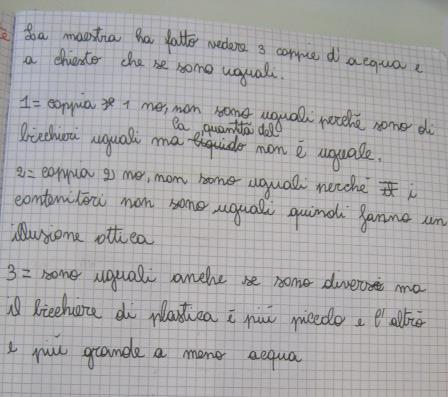 La maestra ha fatto vedere 3 coppie d'acqua e
a chiesto che se sono uguali.
1= coppia 1 no, non sono uguali perché sono di
la quantità del
bicchieri uguali ma liquido non é uguale.
2= coppia 2) no, non sono uguali perché i
contenitori non sono uguali quindi fanno un
illusione ottica
3= sono uguali anche se sono diversi ma
il bicchiere di plastica é piú piccolo e l'altro
e piú grande a meno acqua